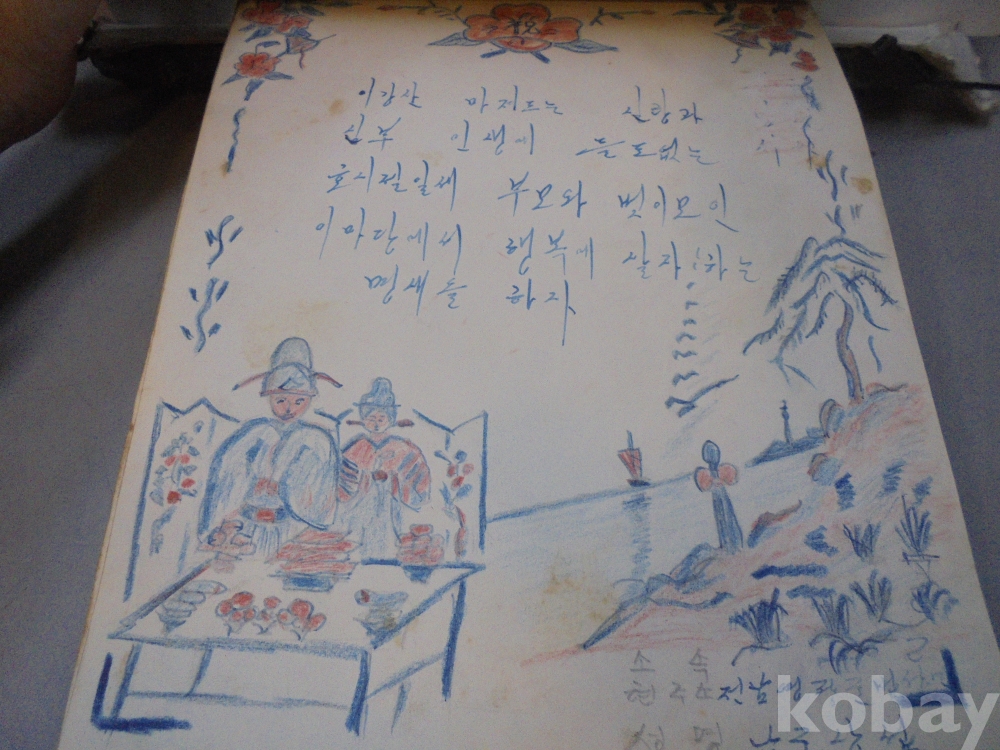 이강산 마지드는 신랑과
신부 인생에 들도없는
호시절일세 부모와 벗이모인
이마당에서 행복에 살자!하는
맹세들 하자
소속
현주소 전남
성명
kobay